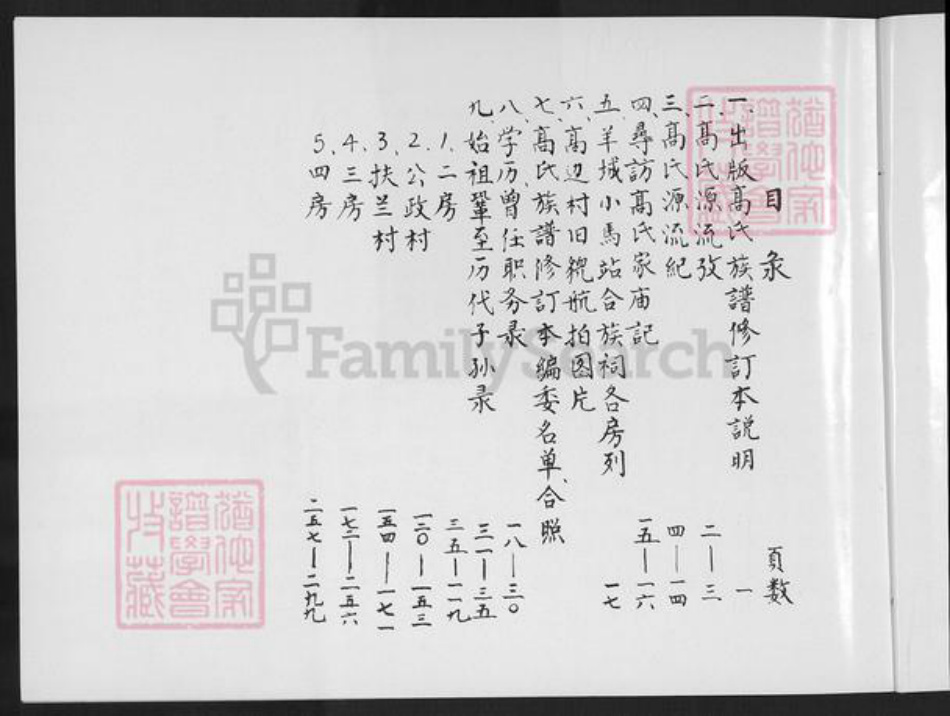 目录
頁数
一、出版高氏族譜修訂本説明 一
二、高氏源流攷 二—三
三、高氏源流紀 四—一四
四、尋訪高氏家庙記 一五—一六
五、羊城小馬站合族祠各房列 一七
六、高边村旧貌航拍图片
七、高氏族譜修訂本编委名单、合照
八、学历曾任职务录 一八—三〇
九、始祖鞏至历代子孙录 三一—三五
1、二房 三五—一一九
2、公政村 一二〇—一五三
3、扶兰村 一五四—一七一
4、三房 一七二—二五六
5、四房 二五七—二九九
FamilySearch
譜學會
藏
譜學會
藏